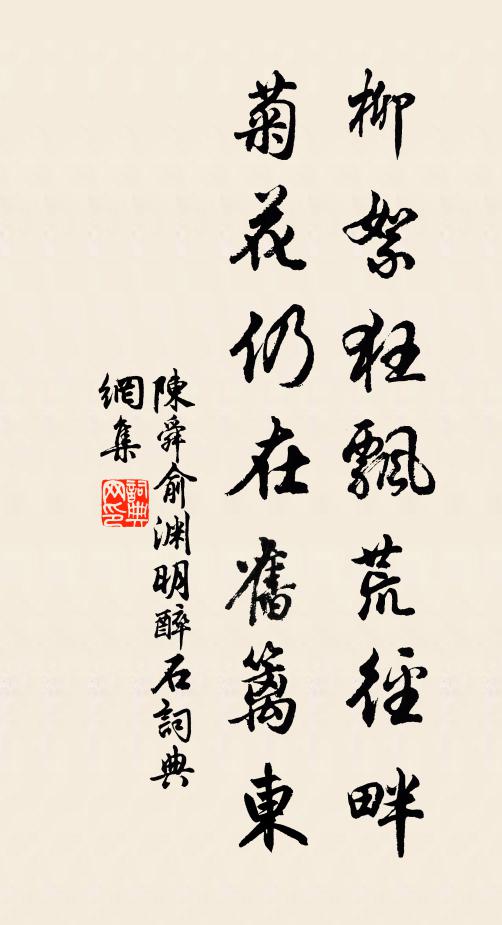 柳絮狂飄荒徑畔
菊花仍在舊籬東
陳舜俞淵明醉石詞典
網集
詞典
网印